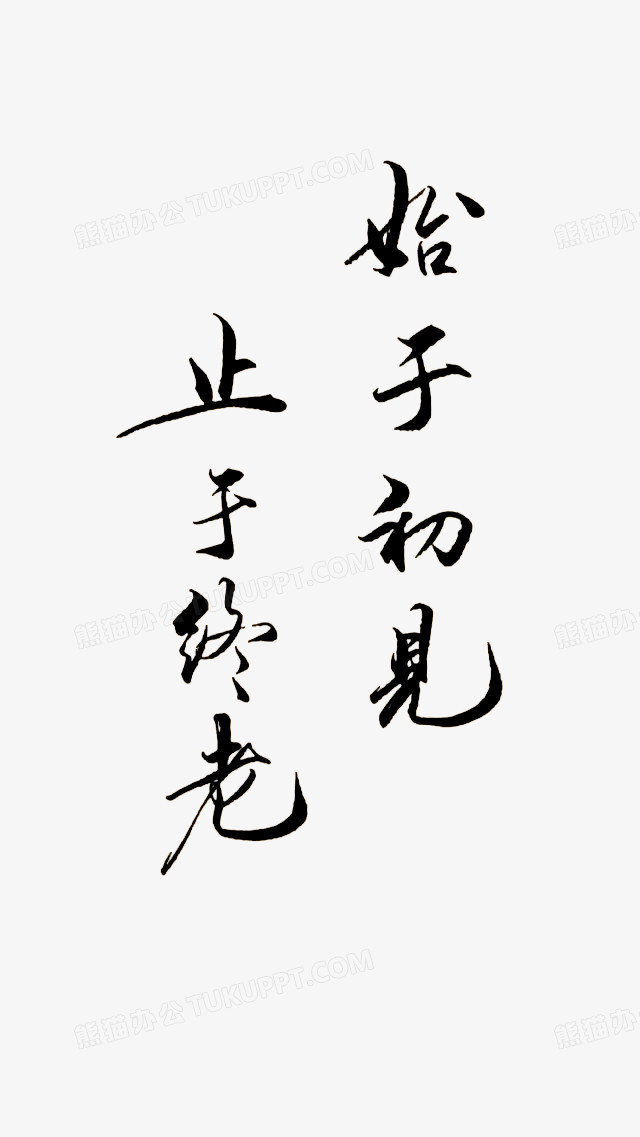 始于初見
止于终老
熊猫办公 TUKUPPT.COM
熊猫办
熊猫办公 TUKUPPT.COM
熊猫办
熊猫办公 TUKUPPT.COM
熊猫办